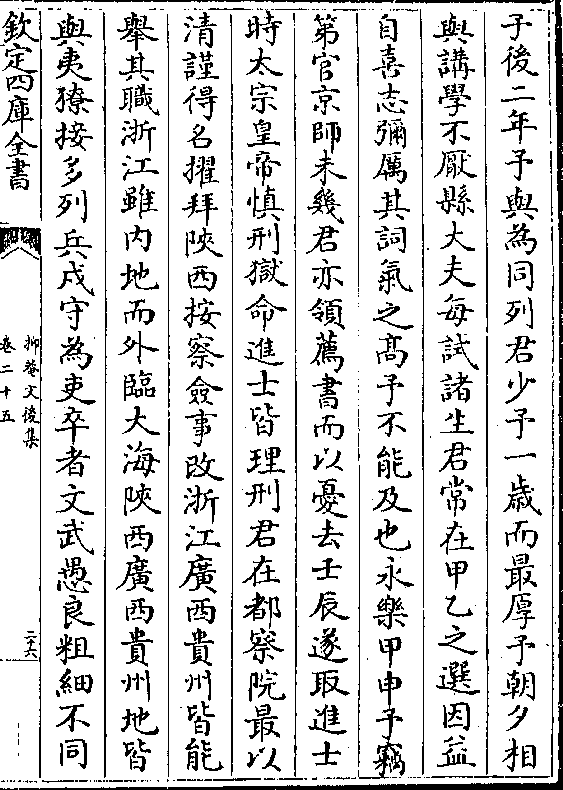 子後二年予與為同列君少予一歳而最厚予朝夕相
與講學不厭縣大夫每試諸生君常在甲乙之選因益
自喜志彌厲其詞氣之髙予不能及也永樂甲申予竊
第官京師未幾君亦領薦書而以憂去壬辰遂取進士
時太宗皇帝慎刑獄命進士皆理刑君在都察院最以
清謹得名擢拜陜西按察僉事改浙江廣西貴州皆能
舉其職浙江雖内地而外臨大海陜西廣西貴州地皆
與夷獠接多列兵戍守為吏卒者文武愚良粗細不同
欽定四庫全書
抑菴文後集
卷二十五
二十六